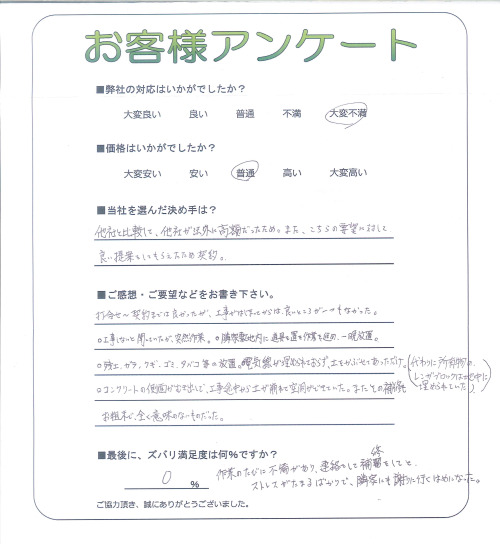 お客様アンケート
■弊社の対応はいかがでしたか？
大変良い 良い 普通 不満 大変不満
■価格はいかがでしたか？
大変安い 安い 普通 高い 大変高い
■当社を選んだ決め手は？
他社と比較して、他社が法外に高額だったため。また、こちらの要望に対して
良い提案をしてもらえたため契約。
■ご感想・ご要望などをお書き下さい。
打合せ～契約までは良かったが、工事がはじまってからは、良いところが一つもなかった。
○工事しないと聞いていたが、突然作業。○隣家敷地内に道具を置き作業を進め、一晩放置。
○残土、ガラ、クギ、ゴミ、タバコ等の放置。電気線が埋められておらず、土をかぶせてあっただけ。
(代わりに所有物の
レンガブロックは地中に
埋められていた)
○コンクリートの側面がむき出しで、工事途中から土が崩れて空間ができていた。またその補修も
お粗末で、全く意味のないものだった。
■最後に、ズバリ満足度は何％ですか？
0 ％
作業のたびに不備があり、連絡をして補修をしてと、
ストレスがたまるばかりで、隣家にも謝りに行くはめになった。
ご協力頂き、誠にありがとうございました。